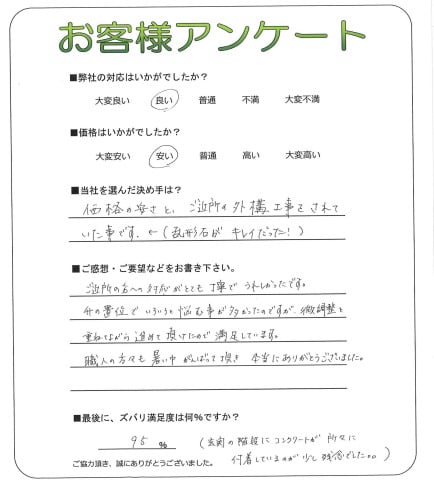 お客様アンケート
■弊社の対応はいかがでしたか？
大変良い 良い 普通 不満 大変不満
■価格はいかがでしたか？
大変安い 安い 普通 高い 大変高い
■当社を選んだ決め手は？
価格の安さと、ご近所の外構工事をされて
いた事です。←(乱形石がキレイだった！)
■ご感想・ご要望などをお書き下さい。
ご近所の方への対応がとても丁寧でうれしかったです。
の置位でいろいろと悩む事が多かったのですが、微調整を
重ねながら進めて頂けたので満足しています。
職人の方々も暑い中がんばって頂き 本当にありがとうございました。
■最後に、ズバリ満足度は何％ですか？
95 %
(玄関の階段にコンクリートが所々に
付着しているのが少し残念でした。。)
ご協力頂き、誠にありがとうございました。